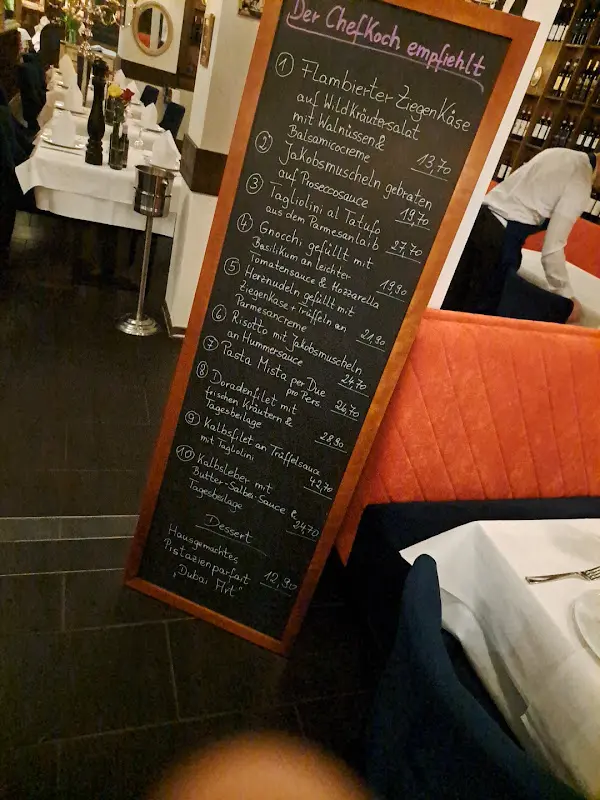 Der Chefkoch empfiehlt
1 Flambierter ZiegenKäse
auf WildKräutersalat
mit Walnüssen &
Balsamicocreme 13,70
2 Jakobsmuscheln gebraten
auf Proseccosauce 19,70
3 Tagliolini al Tatufo
aus dem Parmesanlaib 27,70
4 Gnocchi gefüllt mit
Basilikum an leichter
Tomatensauce & Mozzarella 19,90
5 Herznudeln gefüllt mit
Ziegenkäse + Trüffeln an
Parmesancreme 21,90
6 Risotto mit Jakobsmuscheln
an Hummersauce 24,70
7 Pasta Mista per Due
pro Pers. 26,70
8 Doradenfilet mit
frischen Kräutern &
Tagesbeilage 28,90
9 Kalbsfilet an Trüffelsauce
mit Tagliolini 42,70
10 Kalbsleber mit
Butter-Salbei-Sauce &
Tagesbeilage 24,70
Dessert
Hausgemachtes
Pistazienparfait 12,90
"Dubai Art"